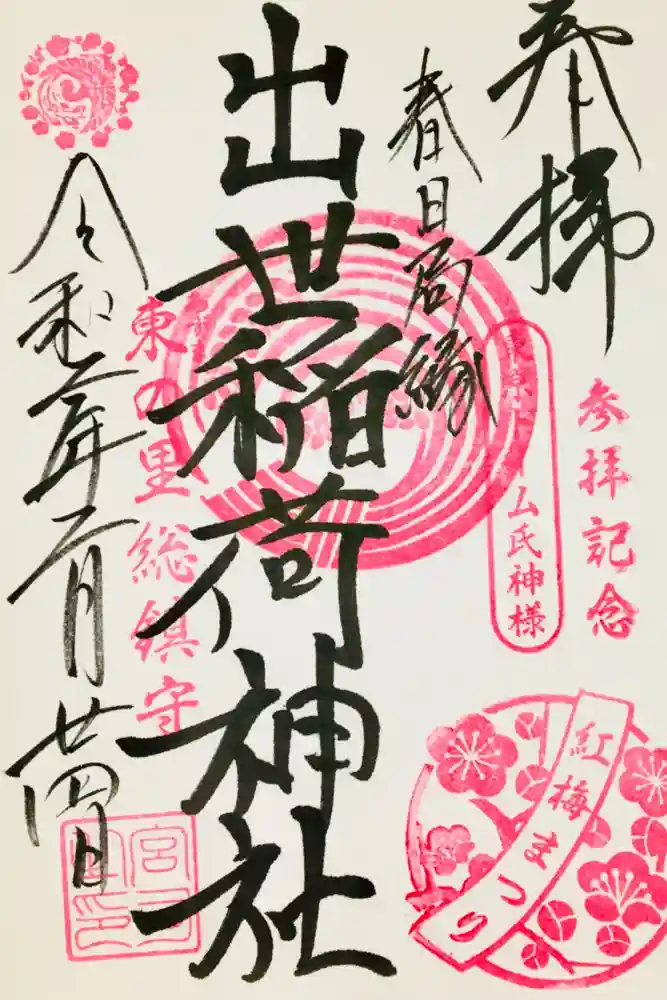 奉拝
参拝記念
東京ドーム氏神様
紅梅まつり
春日局縁
出世稲荷神社
東の里総鎮守
宮司之印
令和二年二月廿四日